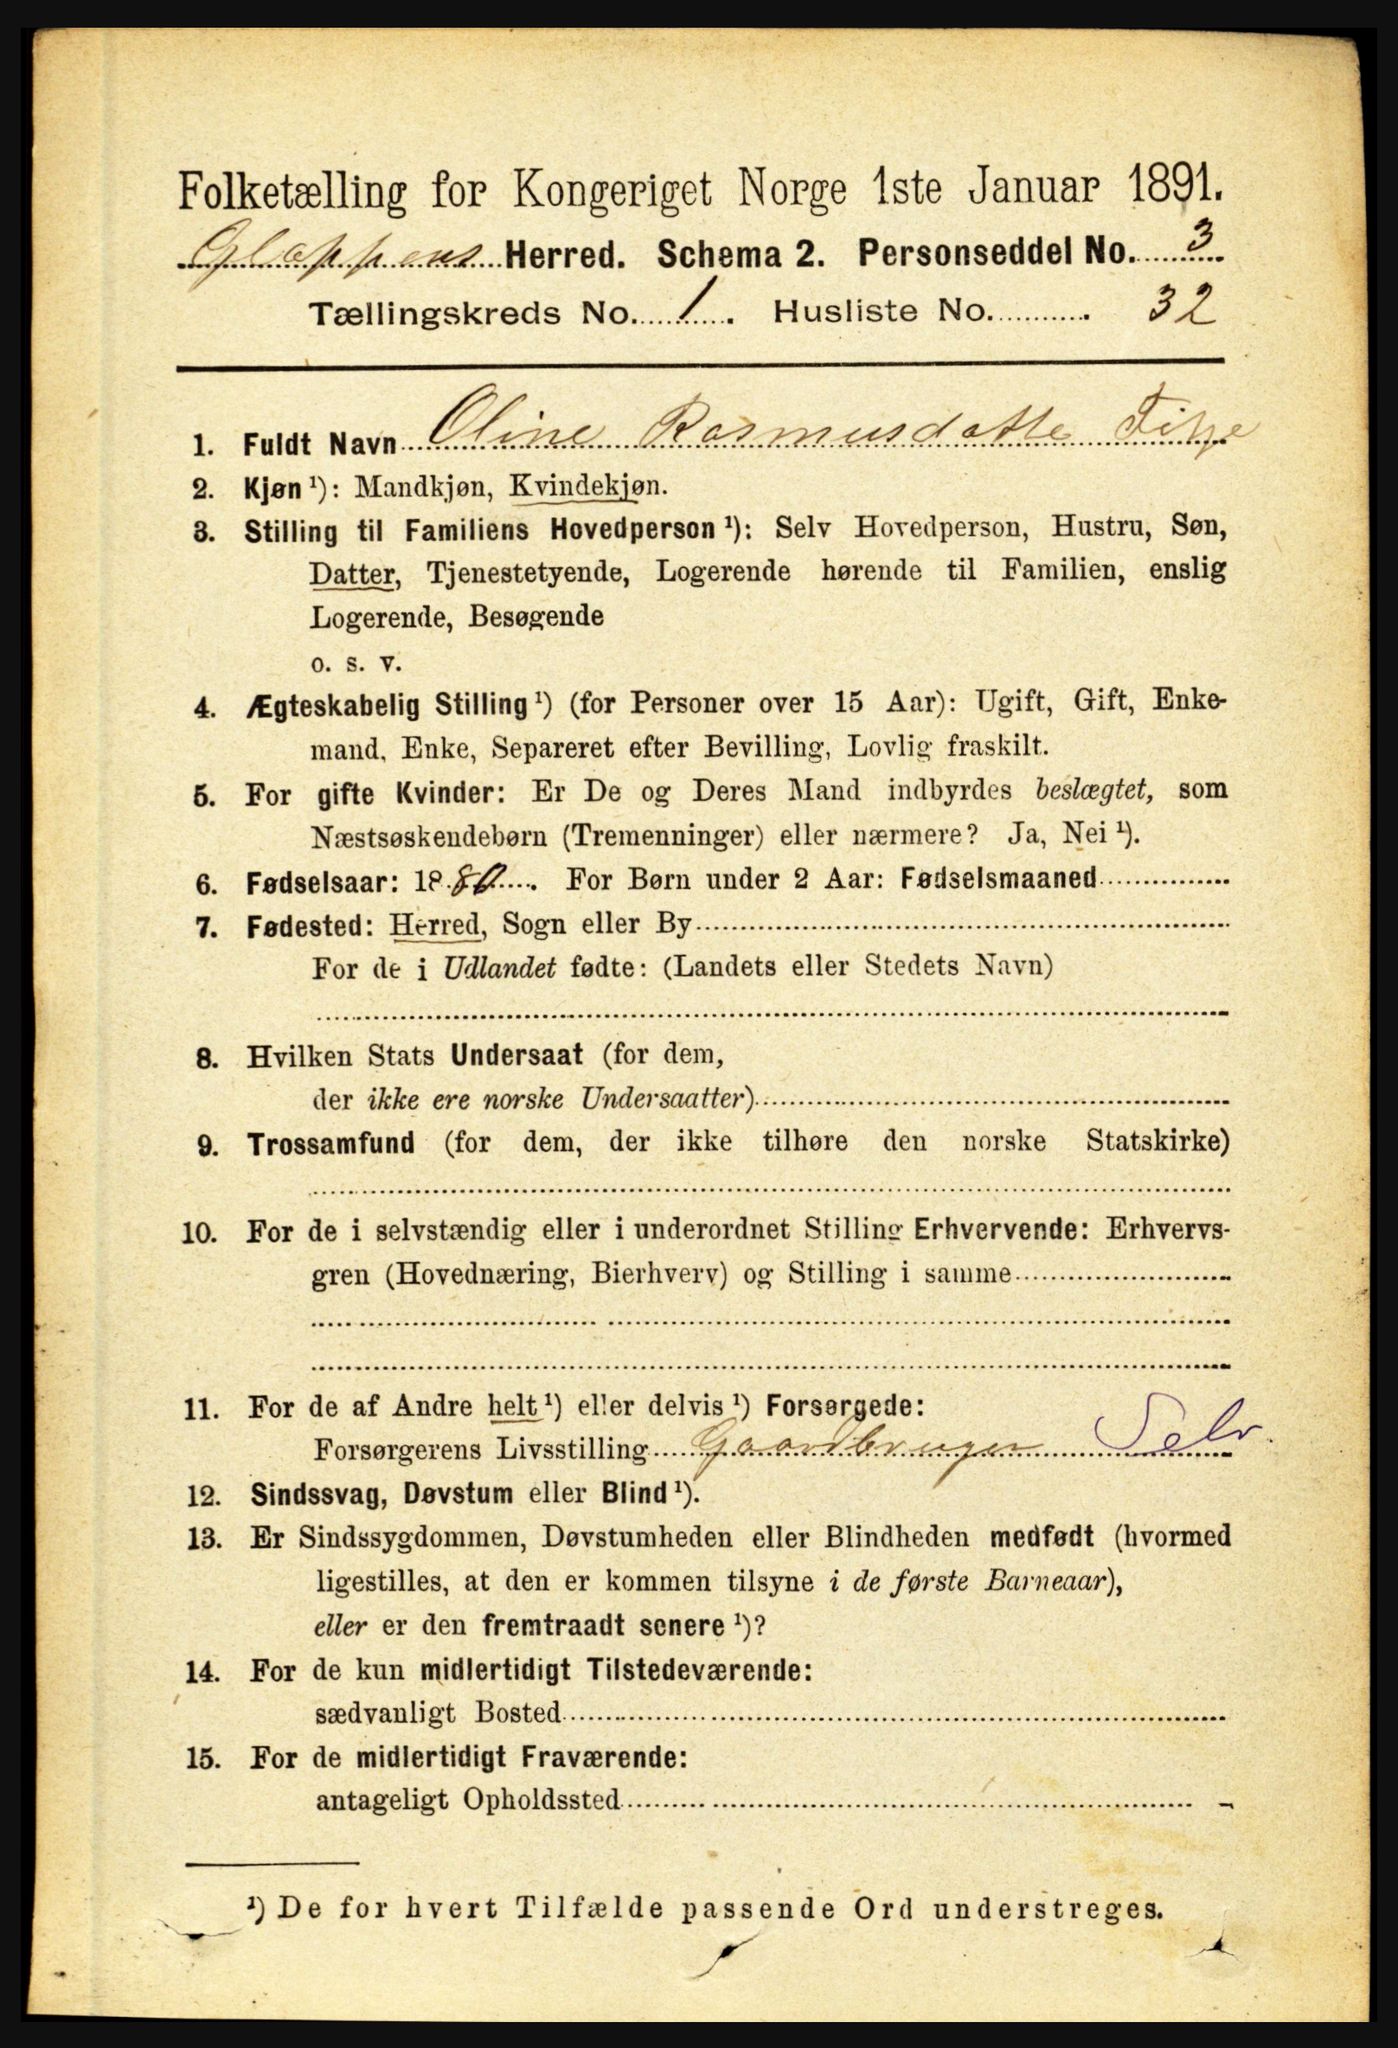 Folketælling for Kongeriget Norge 1ste Januar 1891.
Gloppens Herred. Schema 2. Personseddel No. 3
Tællingskreds No. 1. Husliste No. 32
1. Fuldt Navn Oline Rasmusdatte
2. Kjøn ¹): Mandkjøn, Kvindekjøn.
3. Stilling til Familiens Hovedperson ¹): Selv Hovedperson, Hustru, Søn,
Datter, Tjenestetyende, Logerende hørende til Familien, enslig
Logerende, Besøgende
o. s. v.
4. Ægteskabelig Stilling ¹) (for Personer over 15 Aar): Ugift, Gift, Enke-
mand, Enke, Separeret efter Bevilling, Lovlig fraskilt.
5. For gifte Kvinder: Er De og Deres Mand indbyrdes beslægtet, som
Næstsøskendebørn (Tremenninger) eller nærmere? Ja, Nei ¹).
6. Fødselsaar: 1880. For Børn under 2 Aar: Fødselsmaaned
7. Fødested: Herred, Sogn eller By
For de i Udlandet fødte: (Landets eller Stedets Navn)
8. Hvilken Stats Undersaat (for dem,
der ikke ere norske Undersaatter)
9. Trossamfund (for dem, der ikke tilhøre den norske Statskirke)
10. For de i selvstændig eller i underordnet Stilling Erhvervende: Erhvervs-
gren (Hovednæring, Bierhverv) og Stilling i samme
11. For de af Andre helt ¹) eller delvis ¹) Forsørgede:
Forsørgerens Livsstilling Gaardbruger Selv.
12. Sindssvag, Døvstum eller Blind ¹).
13. Er Sindssygdommen, Døvstumheden eller Blindheden medfødt (hvormed
ligestilles, at den er kommen tilsyne i de første Barneaar),
eller er den fremtraadt senere ¹)?
14. For de kun midlertidigt Tilstedeværende:
sædvanligt Bosted
15. For de midlertidigt Fraværende:
antageligt Opholdssted
¹) De for hvert Tilfælde passende Ord understreges.